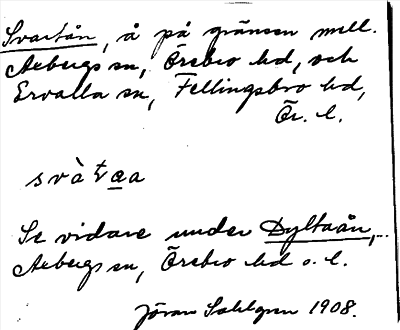 Svartån, å på gränsen mell.
Axbergs sn, Örebro hd, och
Ervalla sn, Fellingsbro hd,
Ör. l.
svàt̀a̲a
Se vidare under Dyltaån,
Axbergs sn, Örebro hd o. l.
Jöran Sahlgren 1908.